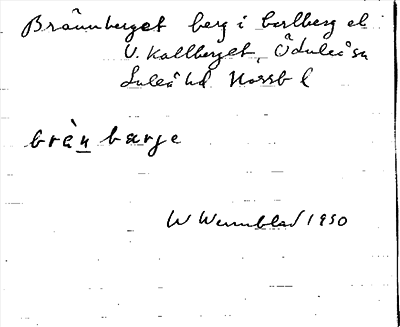 Brännberget berg i Carlberg el
V. Kallberget, Öduleå sn
Luleå hd Norrb l
bràn bærje
W Wennblad 1950